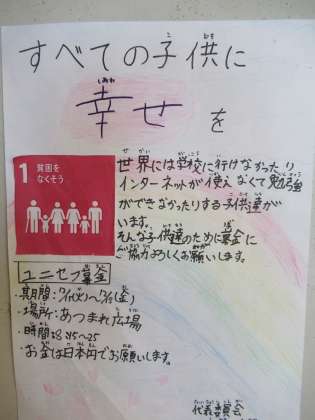 すべての子供に
幸せを
1 貧困を
なくそう
世界には学校に行けなかったり
インターネットが使えなくて勉強
ができなかったりする子供達が
います。
そんな子供達のために募金に
ご協力よろしくお願いします。
ユニセフ募金
・期間:
・場所:あつまれ広場
・時間:8:15〜25
・お金は日本円でお願いします。
代表委員会